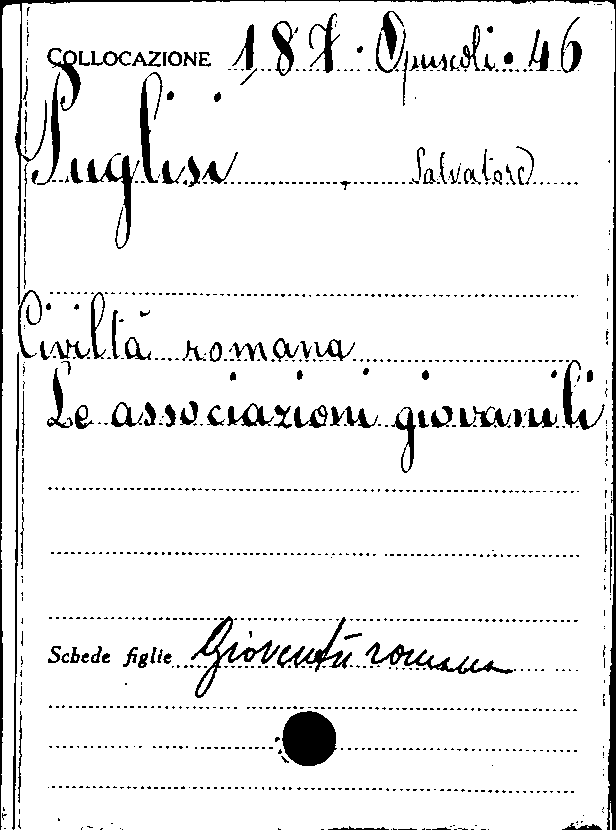 COLLOCAZIONE 187 · Opuscoli · 46
Puglisi , Salvatore
Civiltà romana
Le associazioni giovanili
Schede figlie Gioventù romana